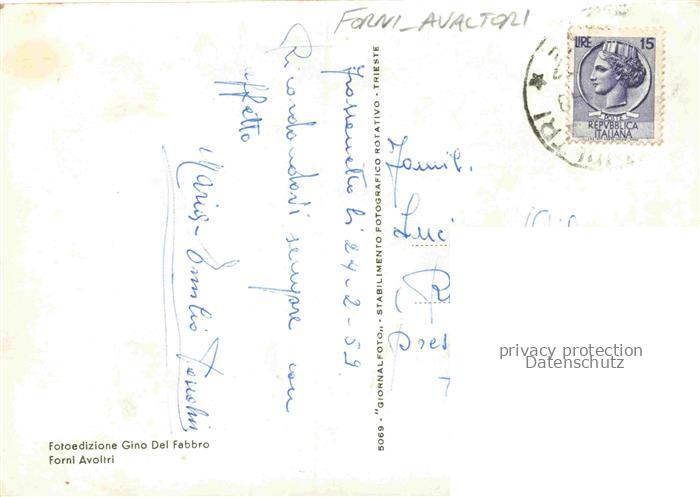 FORNI_AVALTORI
LIRE 15
POSTE
REPVBBLICA
ITALIANA
li 24-2-59
Ricordandovi sempre con
affetto
Maria - Emilio
5069 - "GIORNALFOTO„ - STABILIMENTO FOTOGRAFICO ROTATIVO - TRIESTE
Famil.
privacy protection
Datenschutz
Fotoedizione Gino Del Fabbro
Forni Avoltri